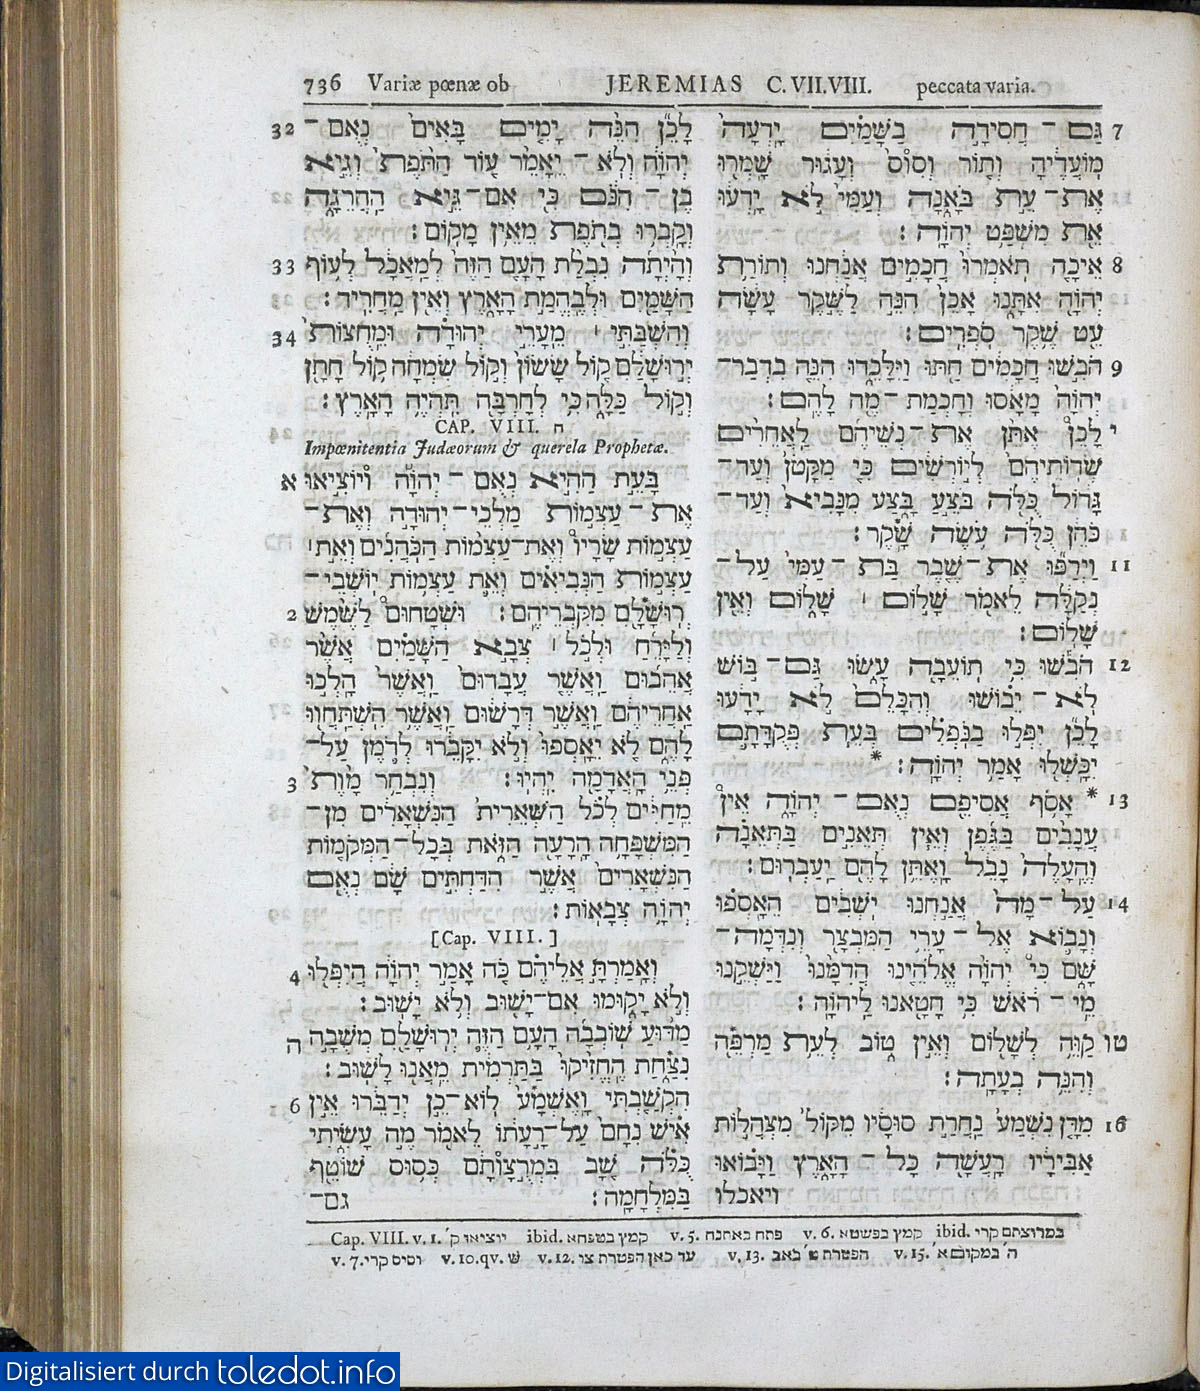 736 Variæ pœnæ ob JEREMIAS C. VII. VIII. peccata varia.
32 לָכֵן הִנֵּה יָמִים בָּאִים נְאֻם־
יְהוָה וְלֹא־יֵאָמֵר עוֹד הַתֹּפֶת וְגֵיא
בֶן־הִנֹּם כִּי אִם־גֵּיא הַהֲרֵגָה
וְקָבְרוּ בְתֹפֶת מֵאֵין מָקוֹם׃
33 וְהָיְתָה נִבְלַת הָעָם הַזֶּה לְמַאֲכָל לְעוֹף
הַשָּׁמַיִם וּלְבֶהֱמַת הָאָרֶץ וְאֵין מַחֲרִיד׃
34 וְהִשְׁבַּתִּי ׀ מֵעָרֵי יְהוּדָה וּמֵחֻצוֹת
יְרוּשָׁלִַם קוֹל שָׂשׂוֹן וְקוֹל שִׂמְחָה קוֹל חָתָן
וְקוֹל כַּלָּה כִּי לְחָרְבָּה תִּהְיֶה הָאָרֶץ׃
CAP. VIII. ח
Impœnitentia Judæorum & querela Prophetæ.
א בָּעֵת הַהִיא נְאֻם־יְהוָה וְיוֹצִיאוּ
אֶת־עַצְמוֹת מַלְכֵי־יְהוּדָה וְאֶת־
עַצְמוֹת שָׂרָיו וְאֶת־עַצְמוֹת הַכֹּהֲנִים וְאֵת ׀
עַצְמוֹת הַנְּבִיאִים וְאֵת עַצְמוֹת יוֹשְׁבֵי־
יְרוּשָׁלִָם מִקִּבְרֵיהֶם׃ 2 וּשְׁטָחוּם לַשֶּׁמֶשׁ
וְלַיָּרֵחַ וּלְכֹל ׀ צְבָא הַשָּׁמַיִם אֲשֶׁר
אֲהֵבוּם וַאֲשֶׁר עֲבָדוּם וַאֲשֶׁר הָלְכוּ
אַחֲרֵיהֶם וַאֲשֶׁר דְּרָשׁוּם וַאֲשֶׁר הִשְׁתַּחֲווּ
לָהֶם לֹא יֵאָסְפוּ וְלֹא יִקָּבֵרוּ לְדֹמֶן עַל־
פְּנֵי הָאֲדָמָה יִהְיוּ׃ 3 וְנִבְחַר מָוֶת
מֵחַיִּים לְכֹל הַשְּׁאֵרִית הַנִּשְׁאָרִים מִן־
הַמִּשְׁפָּחָה הָרָעָה הַזֹּאת בְּכָל־הַמְּקֹמוֹת
הַנִּשְׁאָרִים אֲשֶׁר הִדַּחְתִּים שָׁם נְאֻם
יְהוָה צְבָאוֹת׃
[Cap. VIII.]
4 וְאָמַרְתָּ אֲלֵיהֶם כֹּה אָמַר יְהוָה הֲיִפְּלוּ
וְלֹא יָקוּמוּ אִם־יָשׁוּב וְלֹא יָשׁוּב׃
ה מַדּוּעַ שׁוֹבְבָה הָעָם הַזֶּה יְרוּשָׁלִַם מְשֻׁבָה
נִצַּחַת הֶחֱזִיקוּ בַּתַּרְמִית מֵאֲנוּ לָשׁוּב׃
6 הִקְשַׁבְתִּי וָאֶשְׁמָע לוֹא־כֵן יְדַבֵּרוּ אֵין
אִישׁ נִחָם עַל־רָעָתוֹ לֵאמֹר מֶה עָשִׂיתִי
כֻּלֹּה שָׁב בִּמְרֻצָוֹתָם כְּסוּס שׁוֹטֵף
בַּמִּלְחָמָה׃ גם־
7 גַּם־חֲסִידָה בַשָּׁמַיִם יָדְעָה
מוֹעֲדֶיהָ וְתֹור וְסוּס וְעָגוּר שָׁמְרוּ
אֶת־עֵת בֹּאָנָה וְעַמִּי לֹא יָדְעוּ
אֵת מִשְׁפַּט יְהוָה׃
8 אֵיכָה תֹאמְרוּ חֲכָמִים אֲנַחְנוּ וְתוֹרַת
יְהוָה אִתָּנוּ אָכֵן הִנֵּה לַשֶּׁקֶר עָשָׂה
עֵט שֶׁקֶר סֹפְרִים׃
9 הֹבִשׁוּ חֲכָמִים חַתּוּ וַיִּלָּכֵדוּ הִנֵּה בִדְבַר־
יְהוָה מָאָסוּ וְחָכְמַת־מֶה לָהֶם׃
י לָכֵן אֶתֵּן אֶת־נְשֵׁיהֶם לַאֲחֵרִים
שְׂדוֹתֵיהֶם לְיוֹרְשִׁים כִּי מִקָּטֹן וְעַד־
גָּדוֹל כֻּלֹּה בֹּצֵעַ בָּצַע מִנָּבִיא וְעַד־
כֹּהֵן כֻּלֹּה עֹשֶׂה שָּׁקֶר׃
11 וַיְרַפּוּ אֶת־שֶׁבֶר בַּת־עַמִּי עַל־
נְקַלָּה לֵאמֹר שָׁלוֹם ׀ שָׁלוֹם וְאֵין
שָׁלוֹם׃
12 הֹבִשׁוּ כִּי תוֹעֵבָה עָשׂוּ גַּם־בּוֹשׁ
לֹא־יֵבֹושׁוּ וְהִכָּלֵם לֹא יָדָעוּ
לָכֵן יִפְּלוּ בַנֹּפְלִים בְּעֵת פְּקֻדָּתָם
יִכָּשְׁלוּ אָמַר יְהוָה׃ *
13 * אָסֹף אֲסִיפֵם נְאֻם־יְהוָה אֵין
עֲנָבִים בַּגֶּפֶן וְאֵין תְּאֵנִים בַּתְּאֵנָה
וְהֶעָלֶה נָבֵל וָאֶתֵּן לָהֶם יַעַבְרוּם׃
14 עַל־מָה אֲנַחְנוּ יֹשְׁבִים הֵאָסְפוּ
וְנָבוֹא אֶל־עָרֵי הַמִּבְצָר וְנִדְּמָה־
שָּׁם כִּי יְהוָה אֱלֹהֵינוּ הֲדִמָּנוּ וַיַּשְׁקֵנוּ
מֵי־רֹאשׁ כִּי חָטָאנוּ לַיהוָה׃
טו קַוֵּה לְשָׁלוֹם וְאֵין טוֹב לְעֵת מַרְפֵּה
וְהִנֵּה בְעָתָה׃
16 מִדָּן נִשְׁמַע נַחְרַת סוּסָיו מִקּוֹל מִצְהֲלוֹת
אַבִּירָיו רָעֲשָׁה כָּל־הָאָרֶץ וַיָּבוֹאוּ
ויאכלו
Cap. VIII. v. 1. יוציאו ק' ibid. קמץ בטפחא v. 5. פתח באתנח v. 6. קמץ בפשטא ibid. במרוצתם קרי
v. 7. וסיס קרי v. 10. qv. שׁ v. 12. עד כאן הפטרת צו v. 13. הפטרת ט' באב v. 15. ה' במקום א'
Digitalisiert durch toledot.info